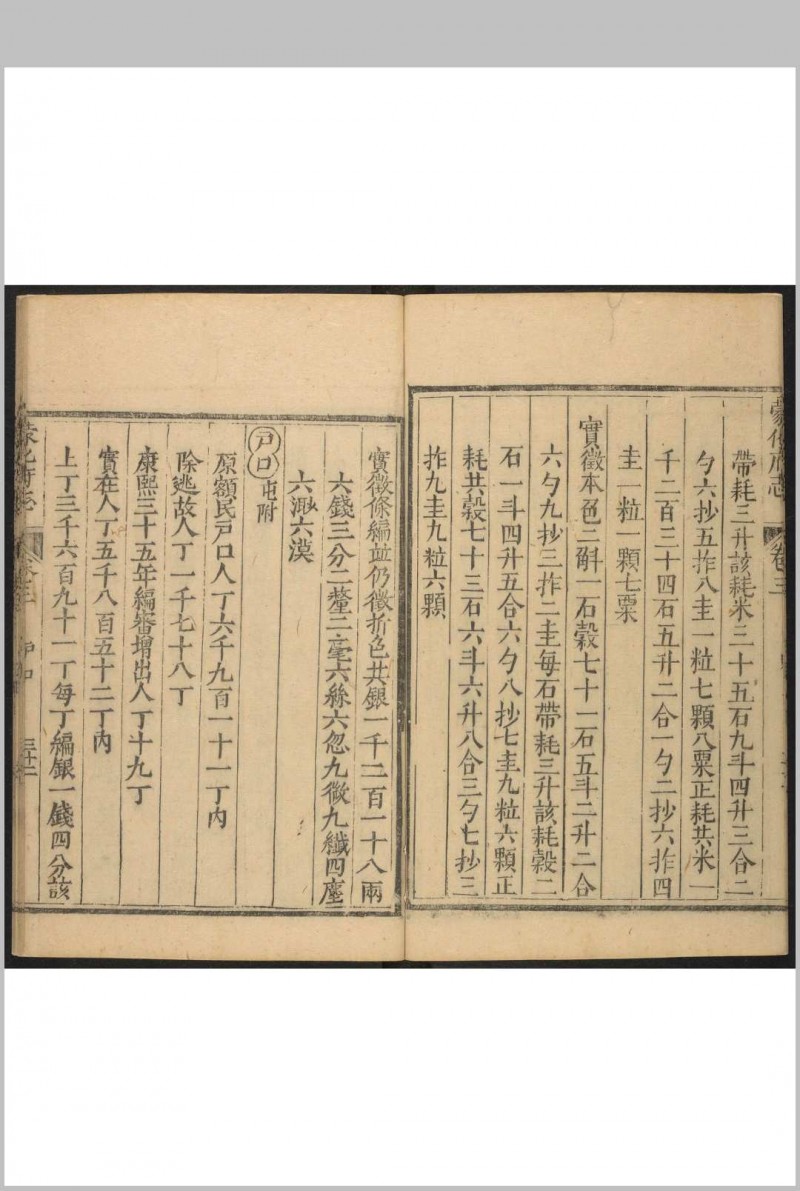 蒙化府志
卷三
帶耗三升該耗米三十五石九斗四升三合二
勺六抄五拃八圭一粒七顆八粟正耗共米一
千二百三十四石五升二合一勺二抄六拃四
圭一粒一顆七粟
實徵本色二斛一石穀七十一石五斗二升二合
六勺九抄三拃二圭每石帶耗三升該耗穀二
石一斗四升五合六勺八抄七圭九粒六顆正
耗共穀七十三石六斗六升八合三勺七抄三
拃九圭九粒六顆
實徵條編並仍徵折色共銀一千二百一十八兩
六錢三分二釐二毫六絲六忽九微九纖四塵
六渺六漠
戶口屯附
原額民戶口人丁六千九百一十一丁內
除逃故人丁一千七十八丁
康熙三十五年編審增出人丁十九丁
實在人丁五千八百五十二丁內
上丁三千六百九十一丁每丁編銀一錢四分該
蒙化府志 卷三 戶口